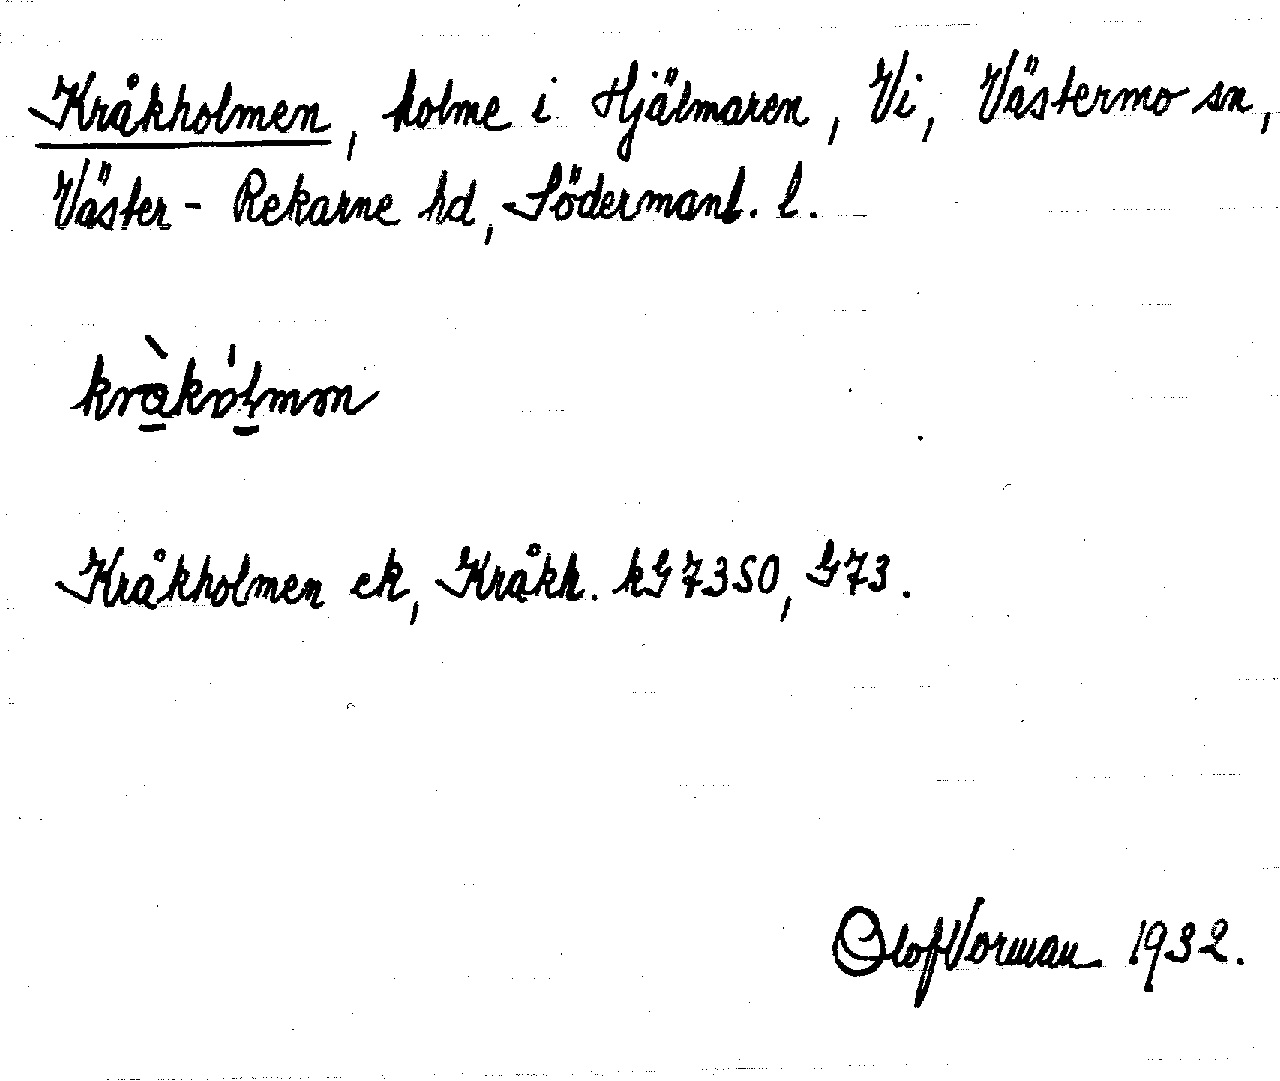 Kråkholmen, holme i Hjälmaren, Vi, Västermo sn,
Väster-Rekarne hd, Södermanl. l.
kràkólmm
Kråkholmen ek, Kråkh. hG 7350, G73.
Olof Vorman 1932.